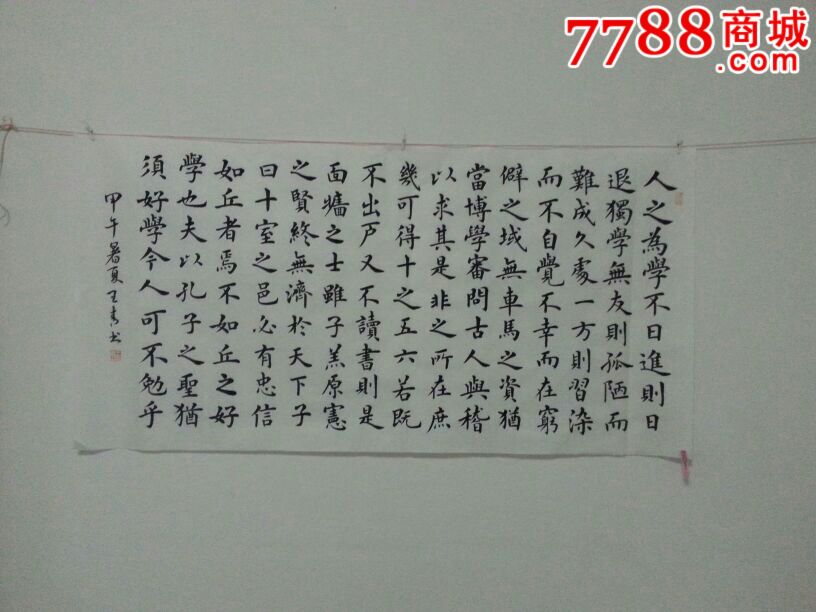 7788商城
.com
人之為學不日進則日
退獨學無友則孤陋而
難成久處一方則習染
而不自覺不幸而在窮
僻之域無車馬之資猶
當博學審問古人與稽
以求其是非之所在庶
幾可得十之五六若既
不出戶又不讀書則是
面牆之士雖子羔原憲
之賢終無濟於天下子
曰十室之邑必有忠信
如丘者焉不如丘之好
學也夫以孔子之聖猶
須好學今人可不勉乎
甲午暑夏王青书